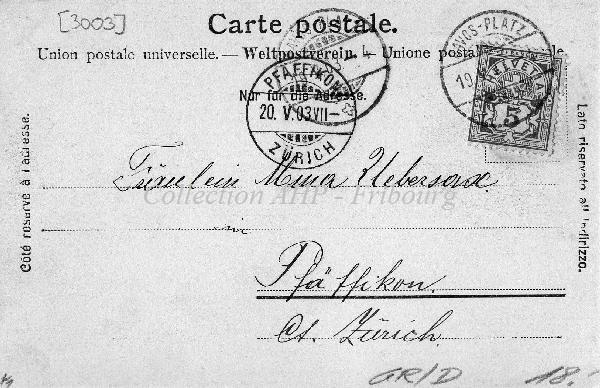 [3003]
Carte postale.
Union postale universelle. — Weltpostverein. — Unione postale
Nur für die Adresse.
PFÄFFIKON
20. V.03 VII–
ZÜRICH
VOS-PLATZ
19.
HELVETIA
5
Côté réservé à l'adresse.
Lato riservato all'indirizzo.
Fräulein Mina Uebersax
Collection AHP - Fribourg
in
Pfäffikon.
Ct. Zürich.
GR/D 18.-